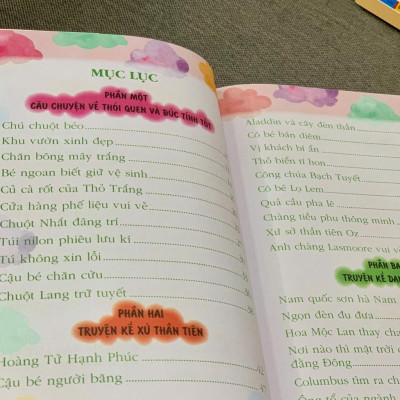 MỤC LỤC
PHẦN MỘT
CÂU CHUYỆN VỀ THÓI QUEN VÀ ĐỨC TÍNH TỐT
Chú chuột béo
Khu vườn xinh đẹp
Chăn bông mây trắng
Bé ngoan biết giữ vệ sinh
Củ cà rốt của Thỏ Trắng
Cửa hàng phế liệu vui vẻ
Chuột Nhắt đãng trí
Túi nilon phiêu lưu kí
Tú không xin lỗi
Cậu bé chăn cừu
Chuột Lang trữ tuyết
PHẦN HAI
TRUYỆN KỂ XỨ THẦN TIÊN
Hoàng Tử Hạnh Phúc
Cậu bé người băng
Aladdin và cây đèn thần
Cô bé bán diêm
Vị khách bí ẩn
Thỏ biển tí hon
Công chúa Bạch Tuyết
Cô bé Lọ Lem
Quả cầu pha lê
Chàng tiều phu thông minh
Xứ sở thần tiên Oz
Anh chàng Lasmoore vui vẻ
PHẦN BA
TRUYỆN KỂ DAN
Nam quốc sơn hà Nam
Ngọn đèn đu đưa
Hoa Mộc Lan thay cha
Nơi nào thì mặt trời
đằng Đông
Columbus tìm ra ch
Ông tổ của ngành